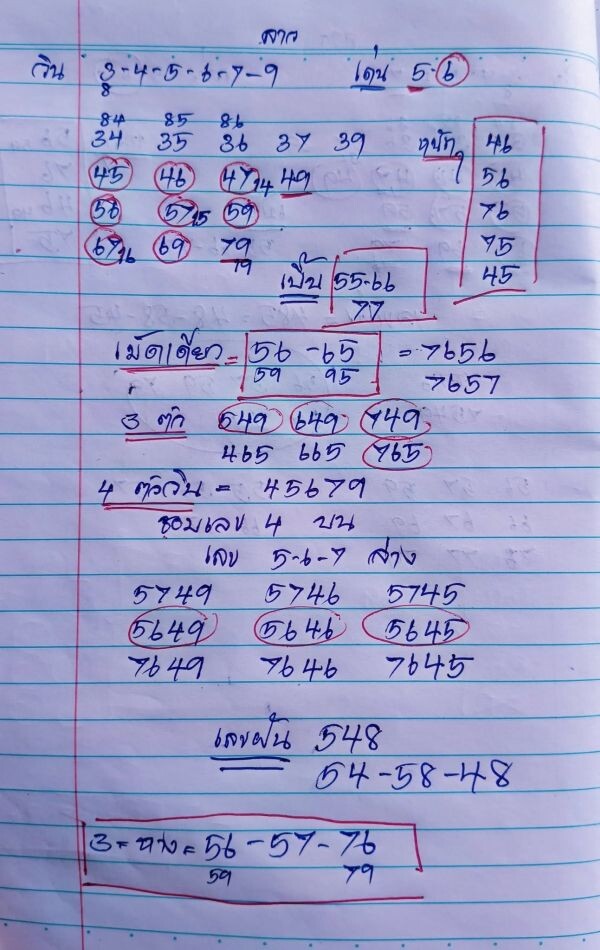 ลาว
วิน 3-4-5-6-7-9 เด่น 5-6
8
84 85 86
34 35 36 37 39 46
45 46 47 14 49 56
56 57 15 59 76
67 16 69 79 75
79 45
เบิ้ล 55-66
77
เม็ดเดียว = 56 - 65 = 7656
59 95 7657
3 ตัว 549 649 749
465 665 765
4 ตัววิน = 45679
ชอบเลข 4 บน
เลข 5-6-7 ล่าง
5749 5746 5745
5649 5646 5645
7649 7646 7645
เลขฝัน 548
54-58-48
3 = ทาง = 56 - 57 - 76
59 79